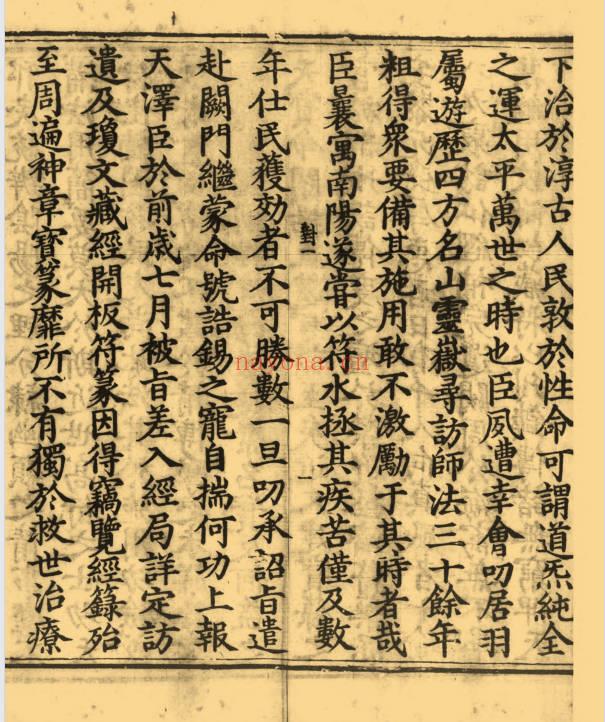 下洽於淳古人民敦於性命可謂道炁純全
之運太平萬世之時也臣夙遭幸會叨居羽
屬遊歷四方名山靈嶽尋訪師法三十餘年
粗得衆要備其施用敢不激勵于其時者哉
臣曩寓南陽遂嘗以符水拯其疾苦僅及數
對一
一
年仕民獲効者不可勝數一旦叨承詔旨遣
赴闕門繼蒙命號誥錫之寵自揣何功上報
天澤臣於前歲七月被旨差入經局詳定訪
遺及瓊文藏經開板符篆因得竊覽經籙殆
至周遍神章寳篆靡所不有獨於救世治療
nayona.cn